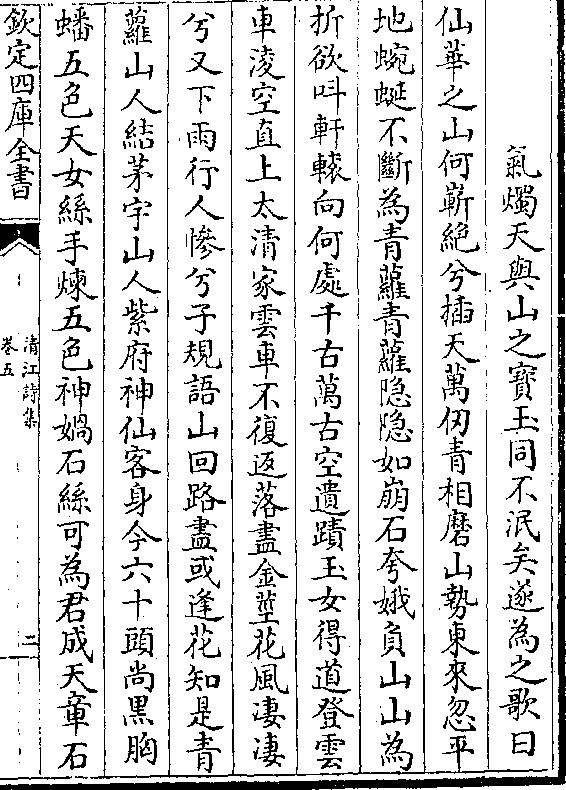 氣燭天與山之寳玉同不泯矣遂為之歌曰
仙華之山何嶄絶兮插天萬仞青相磨山勢東來忽平
地蜿蜒不斷為青蘿青蘿隐隐如崩石夸娥負山山為
折欲叫軒轅向何處千古萬古空遺蹟玉女得道登雲
車淩空直上太清家雲車不復返落盡金莖花風凄凄
兮又下雨行人惨兮子規語山回路盡或逢花知是青
蘿山人結茅宇山人紫府神仙客身今六十頭尚黒胸
蟠五色天女絲手煉五色神媧石絲可為君成天章石
欽定四庫全書
清江詩集
卷五
二